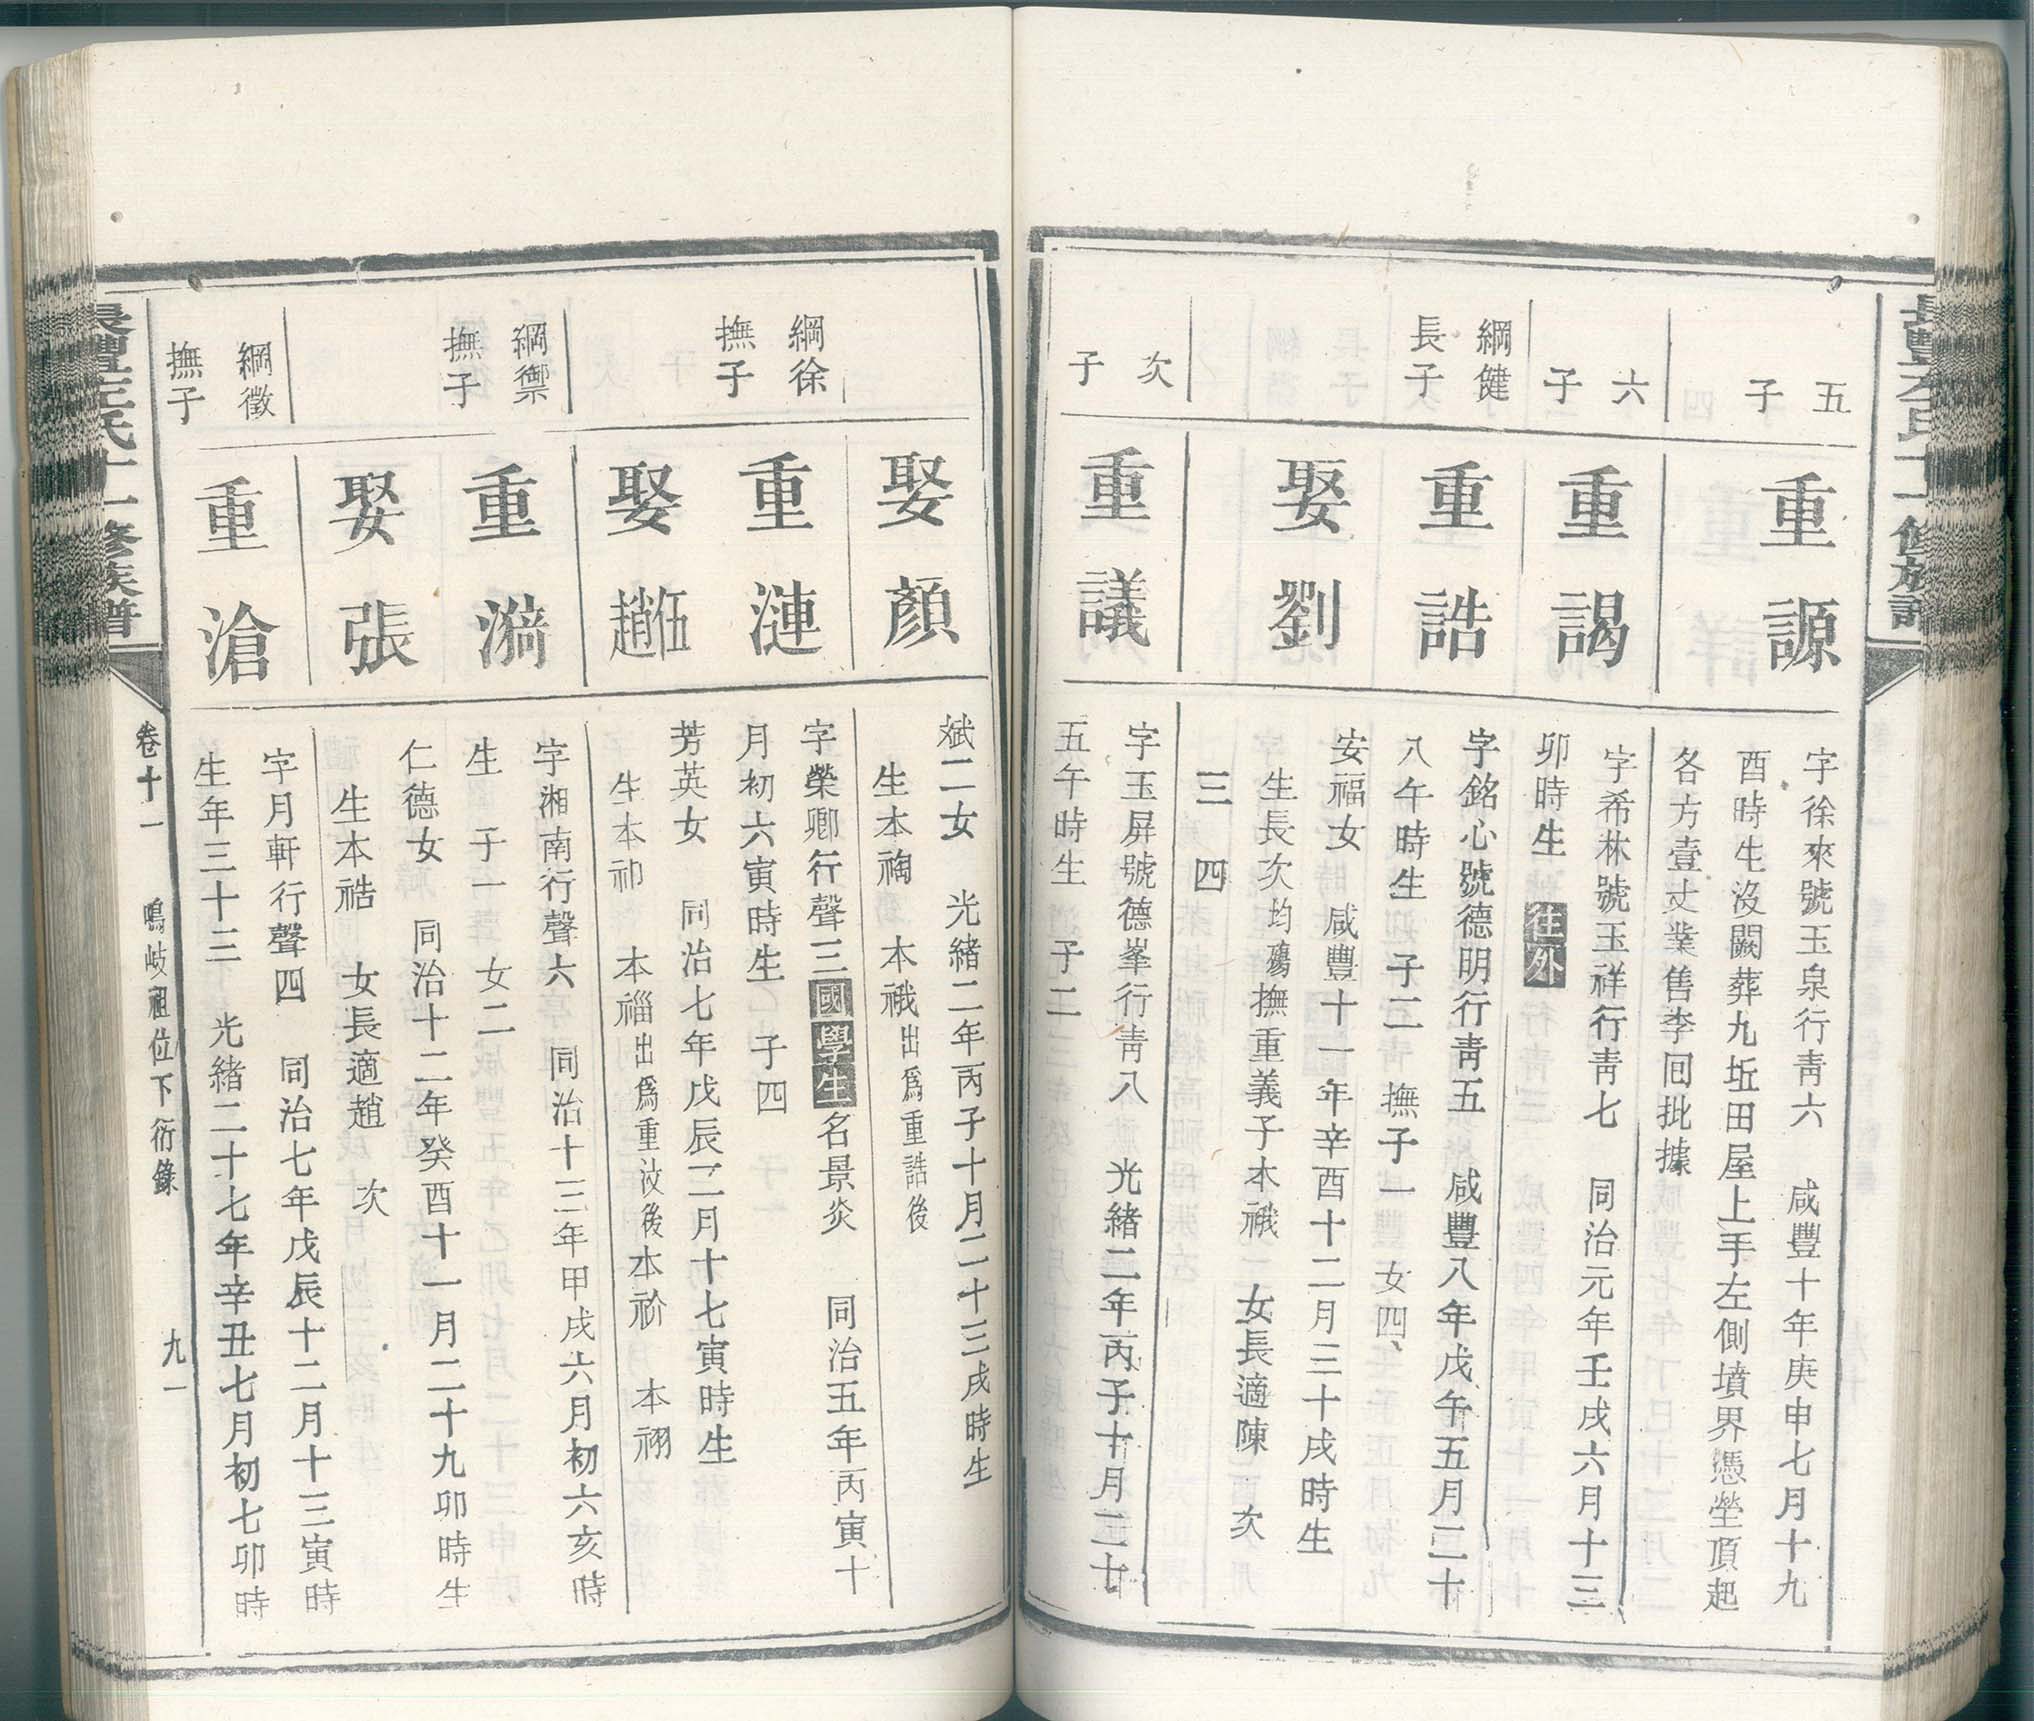 五
子
重源
字徐來號玉泉行靑六　咸豐十年庚申七月十九
酉時生沒闕葬九坵田屋上手左側墳界憑塋頂起
各方壹丈業售李囘批據
六
子
重謁
字希林號玉祥行靑七　同治元年壬戌六月十三
卯時生　往外
綱健
長子
重誥
字銘心號德明行靑五　咸豐八年戊午五月二十
八午時生　子二　撫子一　女四、
娶劉
安福女　咸豐十一年辛酉十二月三十戌時生
生長次均殤撫重義子本禨　女長適陳　次
三　四
次
子
重議
字玉屏號德峯行靑八　光緒二年丙子十月二十
五午時生　子二
娶顏
斌二女　光緒二年丙子十月二十三戌時生
生本裪　本禨出爲重誥後
綱徐
撫子
重漣
字榮卿行聲三國學生名景炎　同治五年丙寅十
月初六寅時生　子四
娶趙伍
芳英女　同治七年戊辰二月十七寅時生
生本 　本緇出爲重汶後本祄　本祤
綱禦
撫子
重漪
字湘南行聲六　同治十三年甲戌六月初六亥時
生　子一　女二
娶張
仁德女　同治十二年癸酉十一月二十九卯時生
生本祰　女長適趙　次
綱徵
撫子
重滄
字月軒行聲四　同治七年戊辰十二月十三寅時
生年三十三　光緒二十七年辛丑七月初七卯時
左氏十一修族譜
卷十一　鳴岐祖位下衍錄　九一